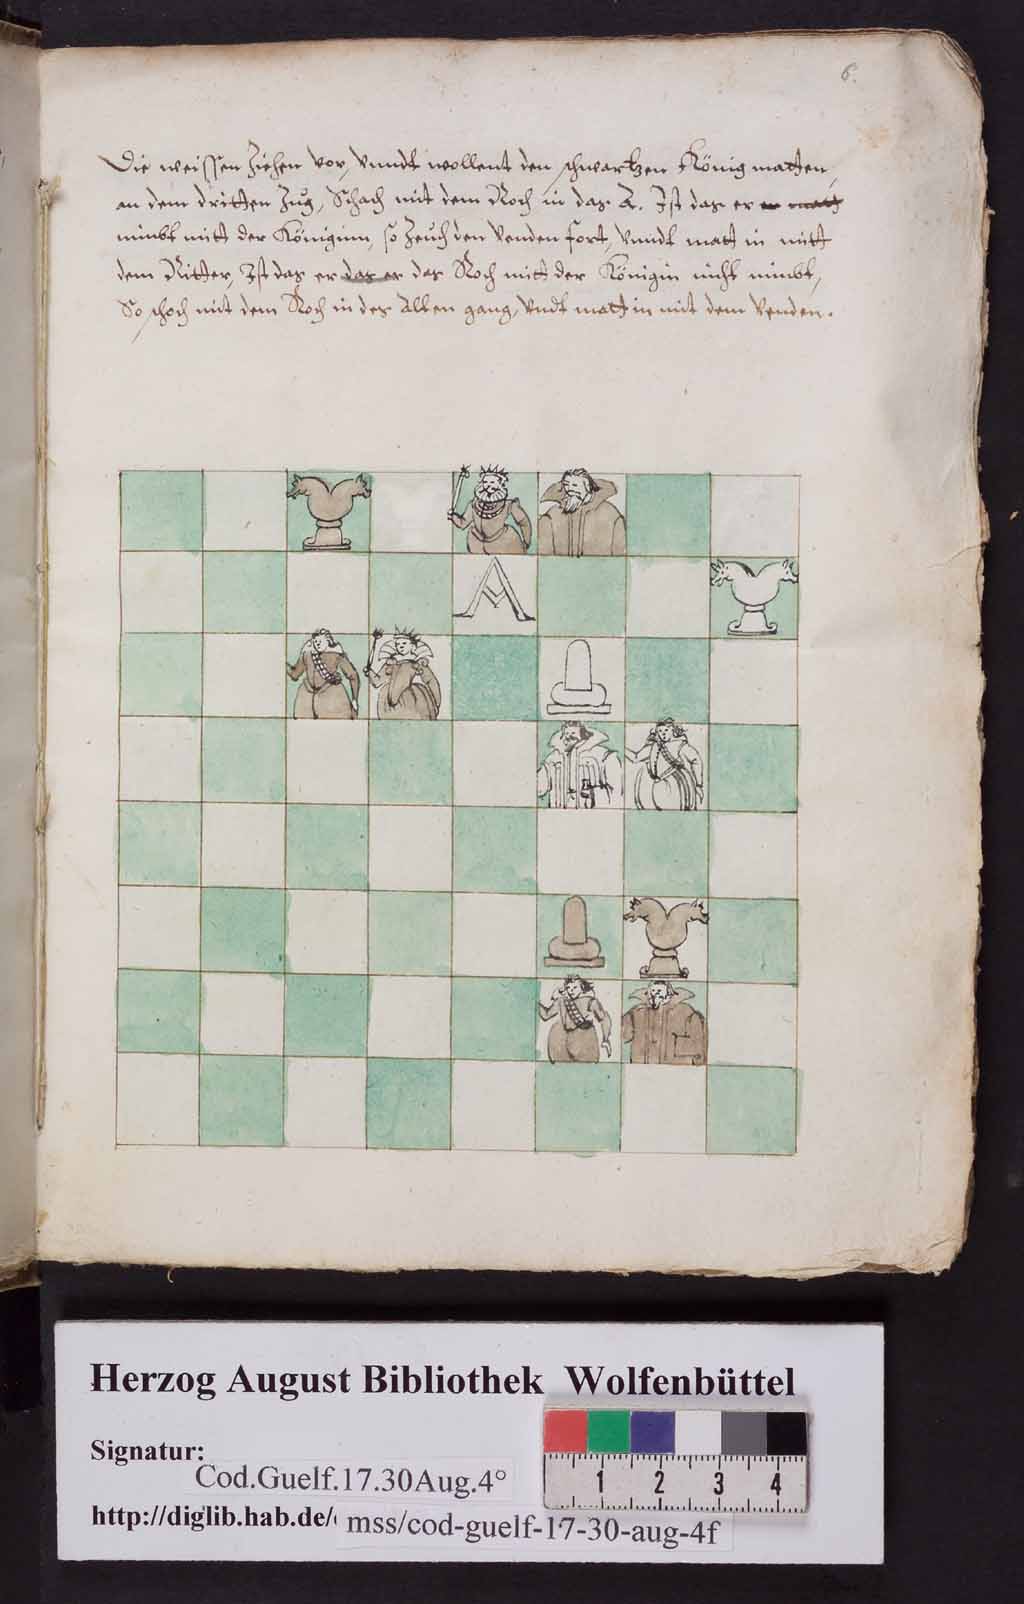 6.
Die weissen Ziehen vor, Vnndt wollent den schwartzen König matten,
an dem dritten Zug, Schach mit dem Roch in das A. Ist das er er matt
nimbt mitt der Königinn, so Zeuch den Venden fort, Vnndt matt in mitt
dem Ritter, Ist das er das er das Roch mitt der Königin nicht nimbt,
So schoch mit dem Roch in des Alten gang, Vndt matt in mit dem Venden.
A
Herzog August Bibliothek Wolfenbüttel
Signatur:
Cod.Guelf.17.30Aug.4°
http://diglib.hab.de/
mss/cod-guelf-17-30-aug-4f
1 2 3 4